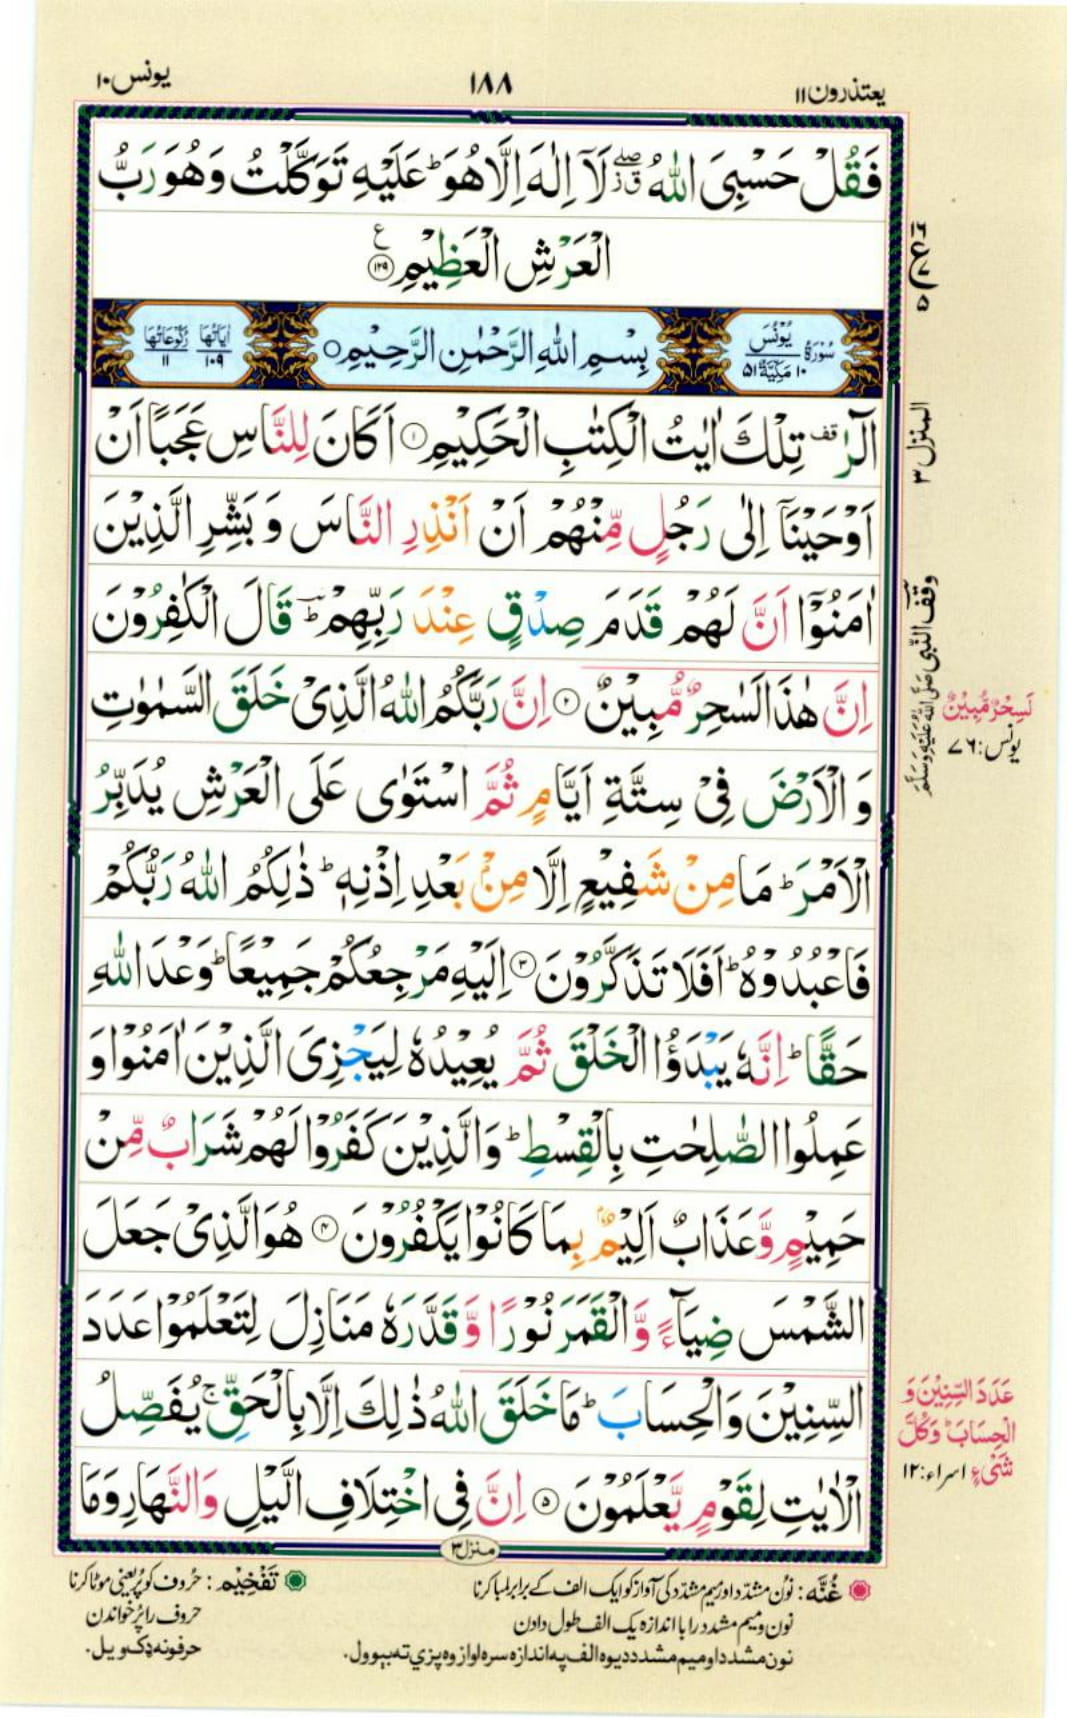 یعتذرون ۱۱
۱۸۸
یونس ۱۰
فَقُلْ حَسْبِیَ اللّٰهُ ۖۗ لَاۤ اِلٰهَ اِلَّا هُوَ ؕ عَلَیْهِ تَوَكَّلْتُ وَهُوَ رَبُّ
الْعَرْشِ الْعَظِیْمِ ۱۲۹
سُوْرَةُ یُوْنُسَ ۱۰ مَكِّیَّةٌ ۵۱
بِسْمِ اللّٰهِ الرَّحْمٰنِ الرَّحِیْمِ
اٰیَاتُهَا ۱۰۹ رُكُوْعَاتُهَا ۱۱
الٓرٰ قف تِلْكَ اٰیٰتُ الْكِتٰبِ الْحَكِیْمِ ۱ اَكَانَ لِلنَّاسِ عَجَبًا اَنْ
اَوْحَیْنَاۤ اِلٰی رَجُلٍ مِّنْهُمْ اَنْ اَنْذِرِ النَّاسَ وَ بَشِّرِ الَّذِیْنَ
اٰمَنُوْۤا اَنَّ لَهُمْ قَدَمَ صِدْقٍ عِنْدَ رَبِّهِمْ ؕ قَالَ الْكٰفِرُوْنَ
اِنَّ هٰذَا لَسٰحِرٌ مُّبِیْنٌ ۲ اِنَّ رَبَّكُمُ اللّٰهُ الَّذِیْ خَلَقَ السَّمٰوٰتِ
وَ الْاَرْضَ فِیْ سِتَّةِ اَیَّامٍ ثُمَّ اسْتَوٰی عَلَی الْعَرْشِ یُدَبِّرُ
الْاَمْرَ ؕ مَا مِنْ شَفِیْعٍ اِلَّا مِنْۢ بَعْدِ اِذْنِهٖ ؕ ذٰلِكُمُ اللّٰهُ رَبُّكُمْ
فَاعْبُدُوْهُ ؕ اَفَلَا تَذَكَّرُوْنَ ۳ اِلَیْهِ مَرْجِعُكُمْ جَمِیْعًا ؕ وَعْدَ اللّٰهِ
حَقًّا ؕ اِنَّهٗ یَبْدَؤُا الْخَلْقَ ثُمَّ یُعِیْدُهٗ لِیَجْزِیَ الَّذِیْنَ اٰمَنُوْا وَ
عَمِلُوا الصّٰلِحٰتِ بِالْقِسْطِ ؕ وَالَّذِیْنَ كَفَرُوْا لَهُمْ شَرَابٌ مِّنْ
حَمِیْمٍ وَّعَذَابٌ اَلِیْمٌۢ بِمَا كَانُوْا یَكْفُرُوْنَ ۴ هُوَ الَّذِیْ جَعَلَ
الشَّمْسَ ضِیَآءً وَّ الْقَمَرَ نُوْرًا وَّ قَدَّرَهٗ مَنَازِلَ لِتَعْلَمُوْا عَدَدَ
السِّنِیْنَ وَ الْحِسَابَ ؕ مَا خَلَقَ اللّٰهُ ذٰلِكَ اِلَّا بِالْحَقِّ ۚ یُفَصِّلُ
الْاٰیٰتِ لِقَوْمٍ یَّعْلَمُوْنَ ۵ اِنَّ فِی اخْتِلَافِ الَّیْلِ وَالنَّهَارِ وَمَا
منزل ۳
المنزل ۳
وقف النبی صَلَّی اللّٰهُ عَلَیْهِ وَسَلَّمَ
لَسِحْرٌ مُّبِیْنٌ
یونس: ۷۶
عَدَدَ السِّنِیْنَ وَ
الْحِسَابَ ؕ وَكُلَّ
شَیْءٍ اسراء: ۱۲
غُنَّه: نون مشدّد اور میم مشدّد کی آواز کو ایک الف کے برابر لمبا کرنا
نون و میم مشدد را با اندازه یک الف طول دادن
نون مشدد او میم مشدد دیوه الف په اندازه سره اواز وه پزې ته بېوول.
تَفْخِیْم: حروف کو پُر یعنی موٹا کرنا
حروف را پُر خواندن
حرفونه ډک ویل.